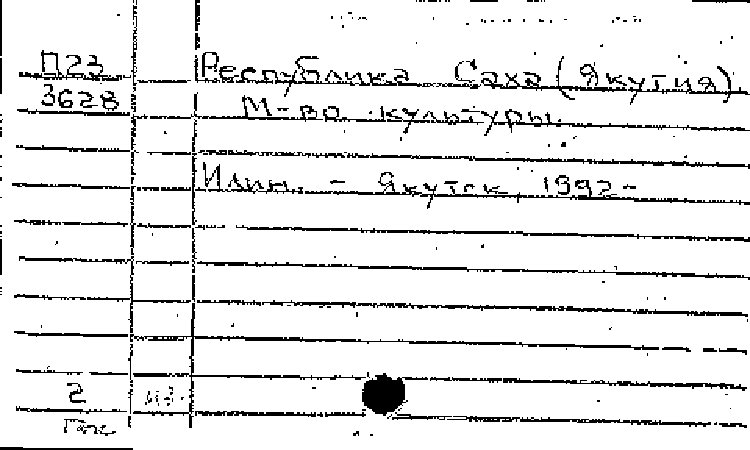 П23
3628
Республика Саха (Якутия).
М-во культуры.
Илин. - Якутск, 1992-
2